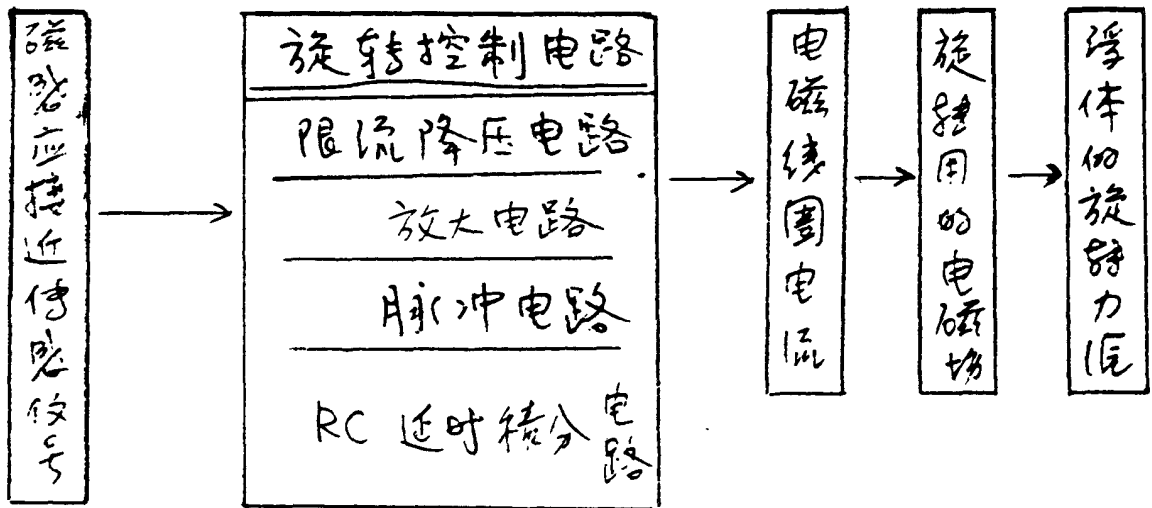 磁感应接近传感信号
旋转控制电路
限流降压电路
放大电路
脉冲电路
RC 延时積分电路
电磁线圈电流
旋转用的电磁场
浮体的旋转力